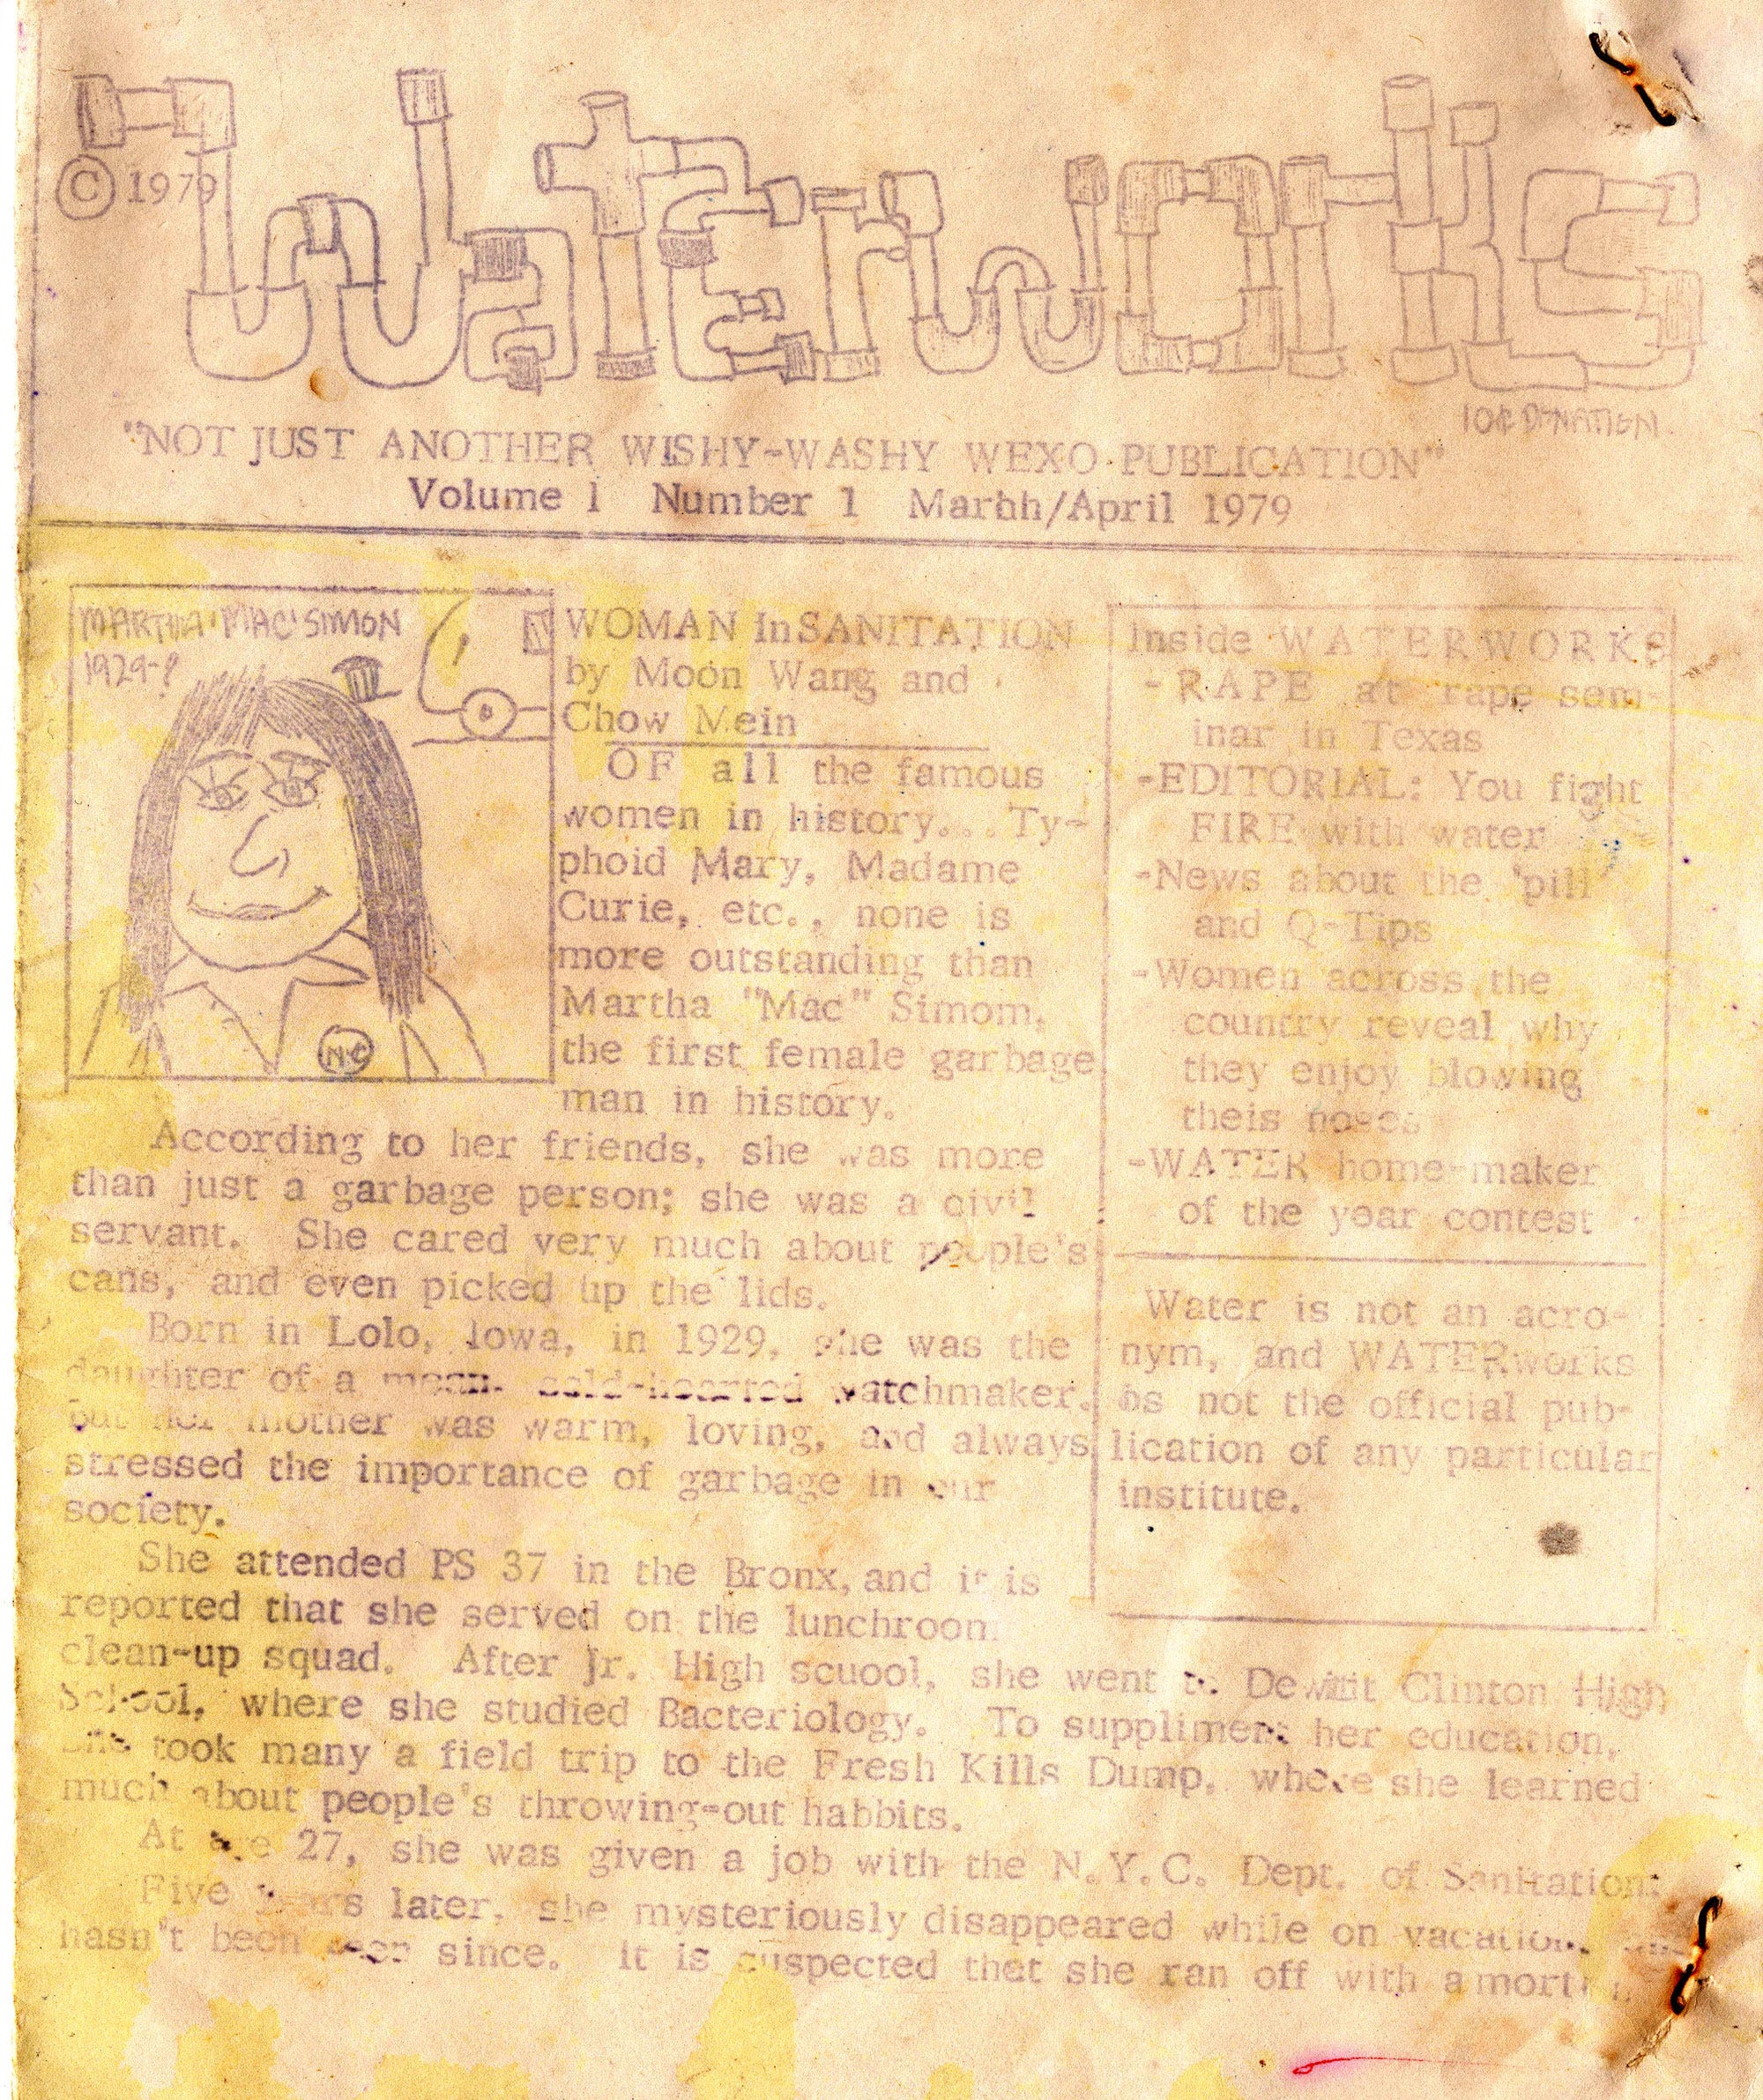 © 1979
Waterworks
10¢ DONATION.
"NOT JUST ANOTHER WISHY-WASHY WEXO PUBLICATION"
Volume 1 Number 1 Marhh/April 1979
MARTHA 'MAC' SIMON
1929-?
N.C
WOMAN InSANITATION
by Moon Wang and
Chow Mein
OF all the famous
women in history... Ty-
phoid Mary, Madame
Curie, etc., none is
more outstanding than
Martha "Mac" Simom,
the first female garbage
man in history.
According to her friends, she was more
than just a garbage person; she was a civil
servant. She cared very much about people's
cans, and even picked up the lids.
Born in Lolo, Iowa, in 1929, she was the
daughter of a mean, cold-hearted watchmaker.
but her mother was warm, loving, and always
stressed the importance of garbage in our
society.
She attended PS 37 in the Bronx, and it is
reported that she served on the lunchroom
clean-up squad. After Jr. High scuool, she went to Dewitt Clinton High
School, where she studied Bacteriology. To suppliment her education,
she took many a field trip to the Fresh Kills Dump, where she learned
much about people's throwing-out habbits.
At age 27, she was given a job with the N.Y.C. Dept. of Sanitation.
Five years later, she mysteriously disappeared while on vacation.
hasn't been seen since. It is suspected that she ran off with a
Inside WATERWORKS
-RAPE at rape sem-
inar in Texas
-EDITORIAL: You fight
FIRE with water
-News about the 'pill'
and Q-Tips
-Women across the
country reveal why
they enjoy blowing
theis noses
-WATER home-maker
of the year contest
Water is not an acro-
nym, and WATERworks
is not the official pub-
lication of any particular
institute.